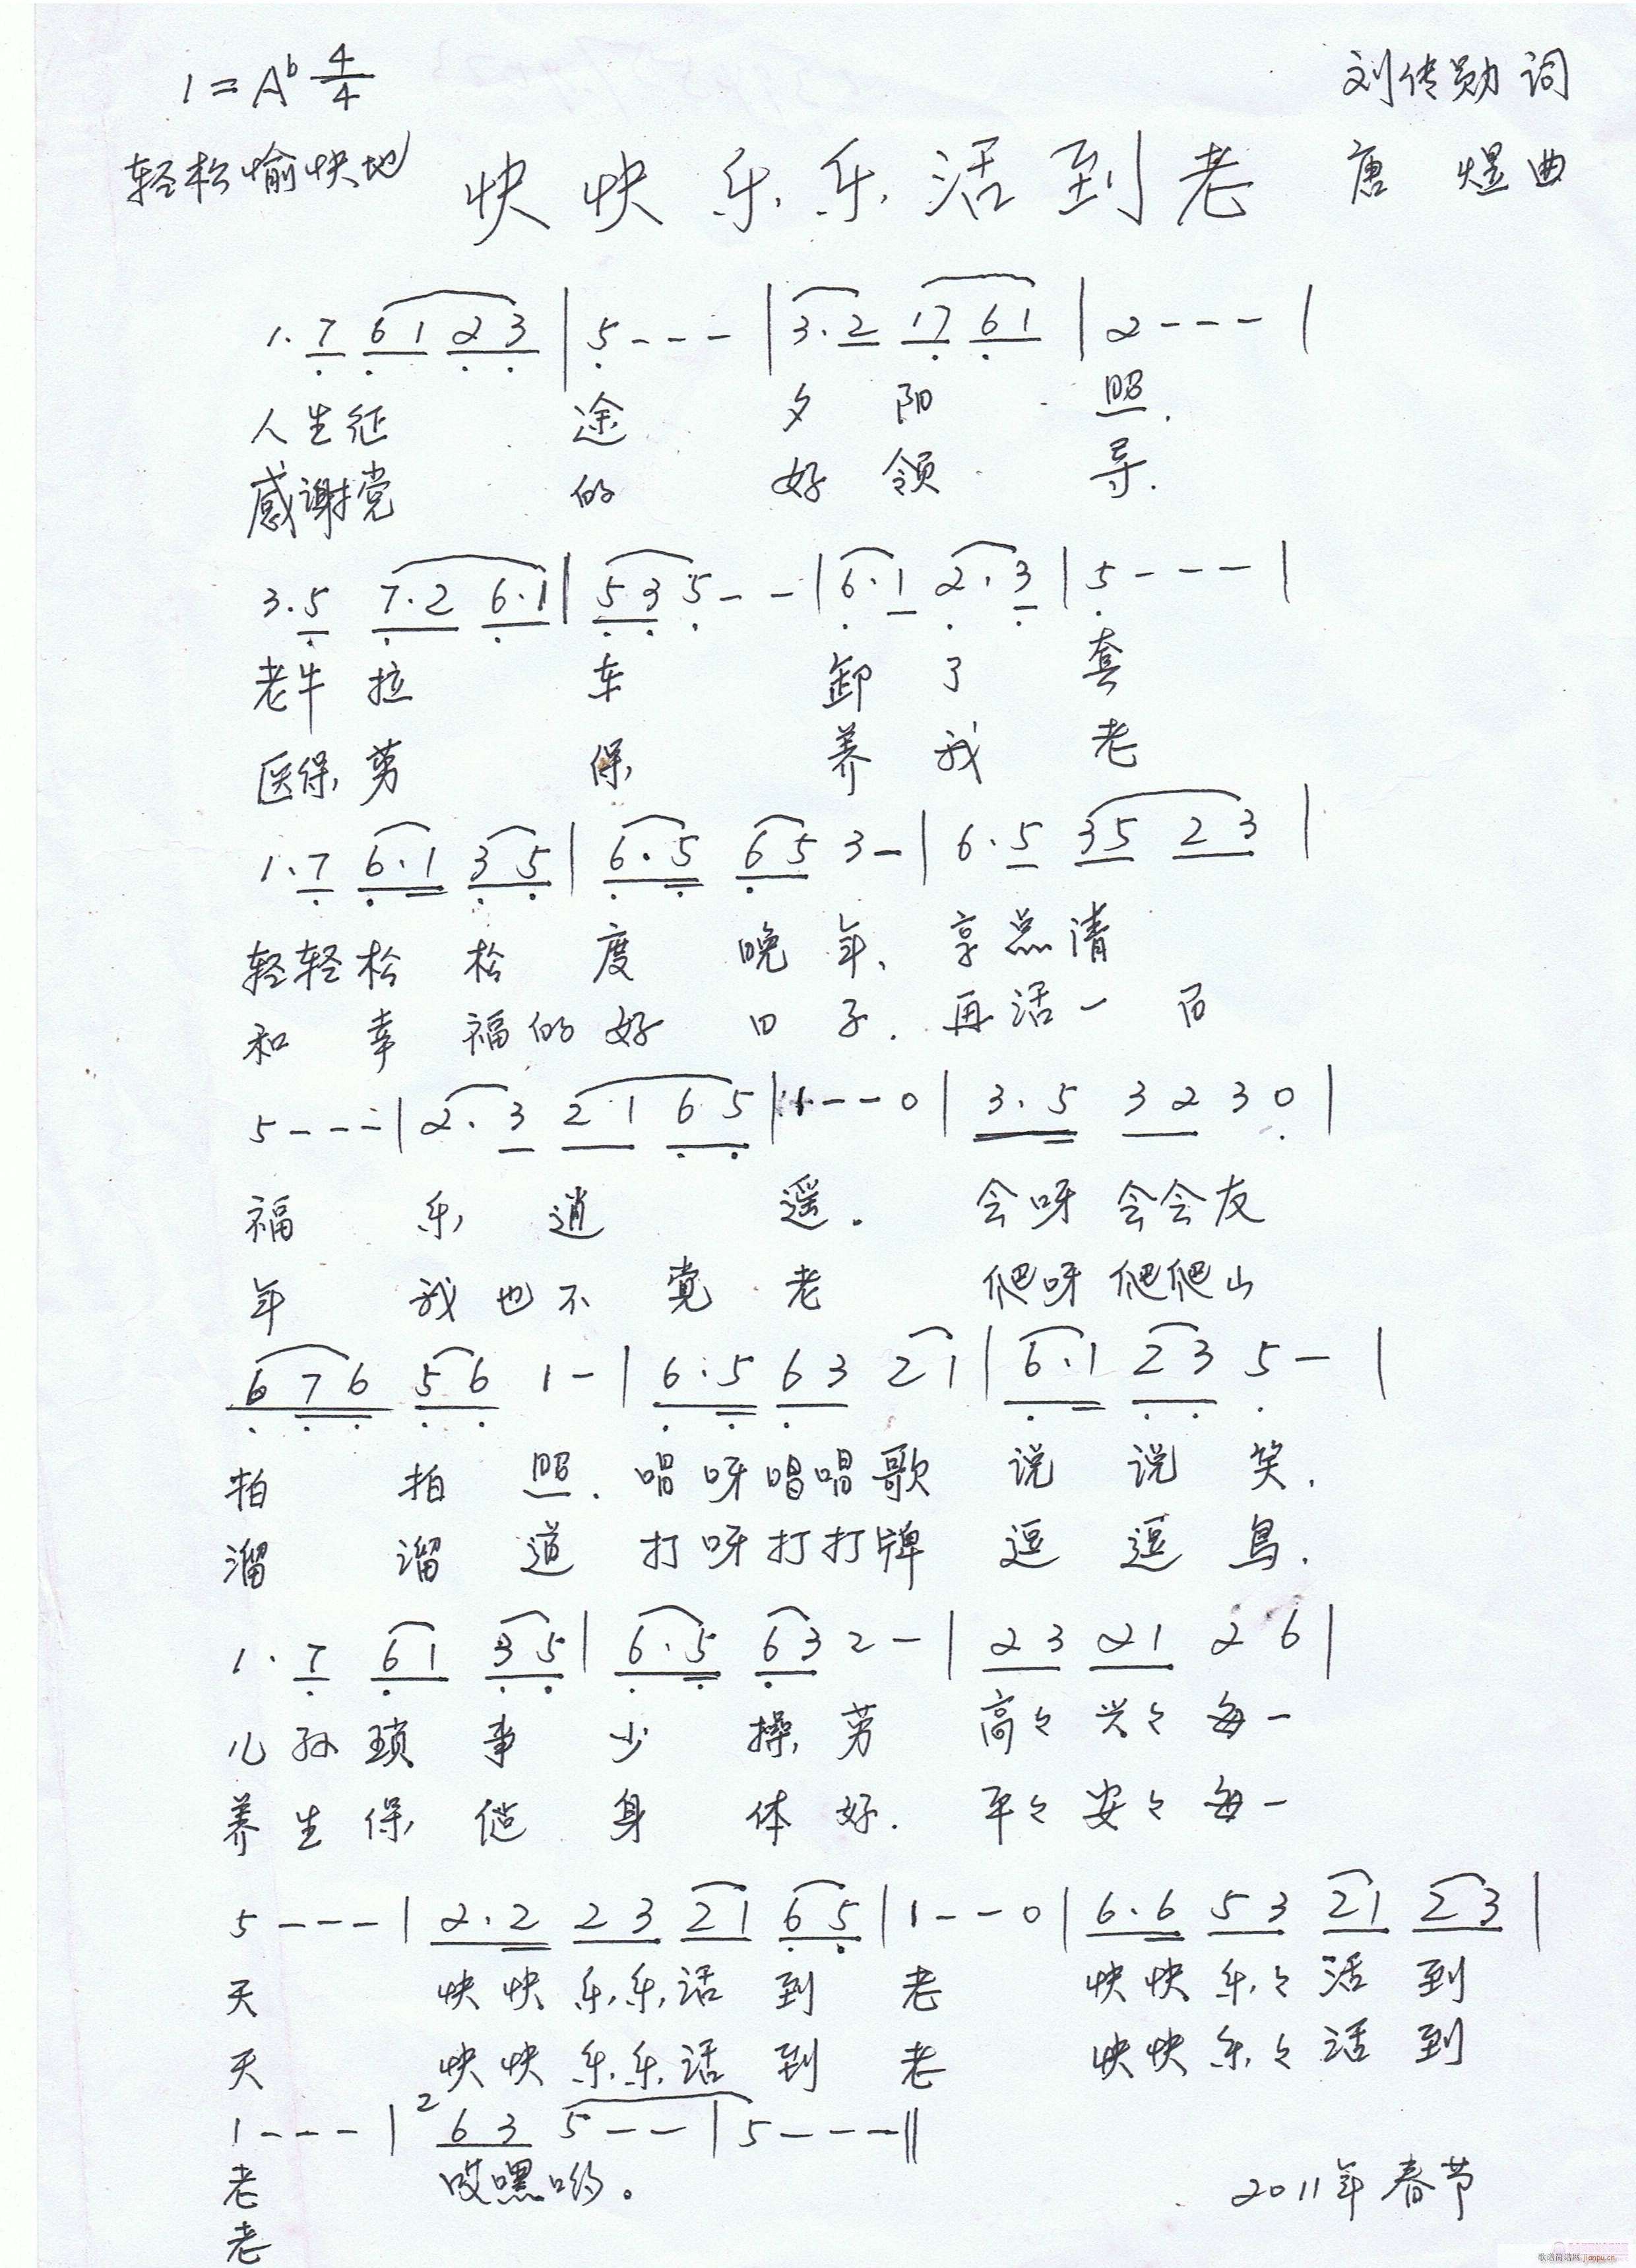 1=A♭ 4/4
刘传勋 词
轻松愉快地
快快乐乐活到老
唐 煜 曲
1. 7 6 1 2 3 | 5 - - - | 3. 2 1 7 6 1 | 2 - - - |
人生征 途 夕 阳 照.
感谢党 的 好 领 导.
3. 5 7. 2 6. 1 | 5 3 5 - - | 6. 1 2. 3 | 5 - - - |
老牛 拉 车 卸 了 套
医保 劳 保 养 我 老
1. 7 6. 1 3 5 | 6. 5 6 5 3 - | 6. 5 3 5 2 3 |
轻轻松 松 度 晚 年、享点清
和 幸 福的好 日 子. 再活一 百
5 - - - | 2. 3 2 1 6 5 | 1 - - 0 | 3. 5 3 2 3 0 |
福 乐 逍 遥。 会呀 会会友
年 我也不 觉 老 爬呀 爬爬山
6 7 6 5 6 1 - | 6. 5 6 3 2 1 | 6. 1 2 3 5 - |
拍 拍 照. 唱呀唱唱歌 说 说 笑.
溜 溜 道 打呀打打牌 逗 逗 鸟.
1. 7 6 1 3 5 | 6. 5 6 3 2 - | 2 3 2 1 2 6 |
儿孙琐 事 少 操 劳 高々兴々 每一
养生保 健 身 体 好. 平々安々 每一
5 - - - | 2. 2 2 3 2 1 6 5 | 1 - - 0 | 6. 6 5 3 2 1 2 3 |
天 快快乐乐活 到 老 快快乐々活 到
天 快快乐乐活 到 老 快快乐々活 到
1 - - - | 2 6 3 5 - - | 5 - - - ‖
老 哎嘿哟。
2011年春节
老
歌谱简谱网 jianpu.cn